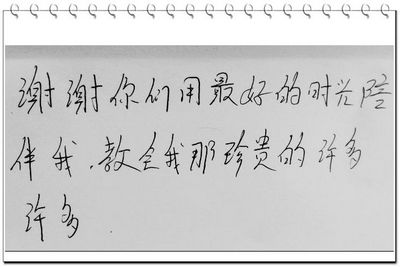 谢谢你们用最好的时光陪
伴我，教会我那珍贵的许多
许多